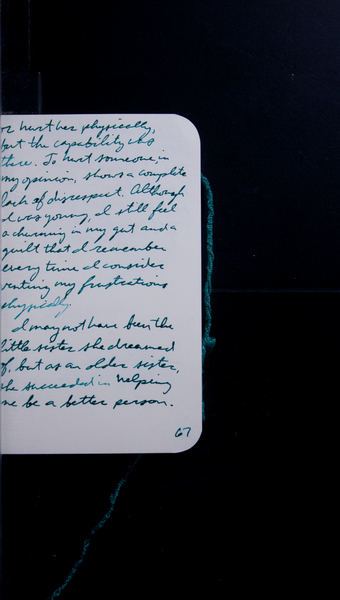 or hurt her physically,
but the capability was
there. To hurt someone, in
my opinion, shows a complete
lack of disrespect. Although
I was young, I still feel
a churning in my gut and a
guilt that I remember
every time I consider
venting my frustrations
physically.
I may not have been the
little sister she dreamed
of, but as an older sister,
she succeeded in helping
me be a better person.
67